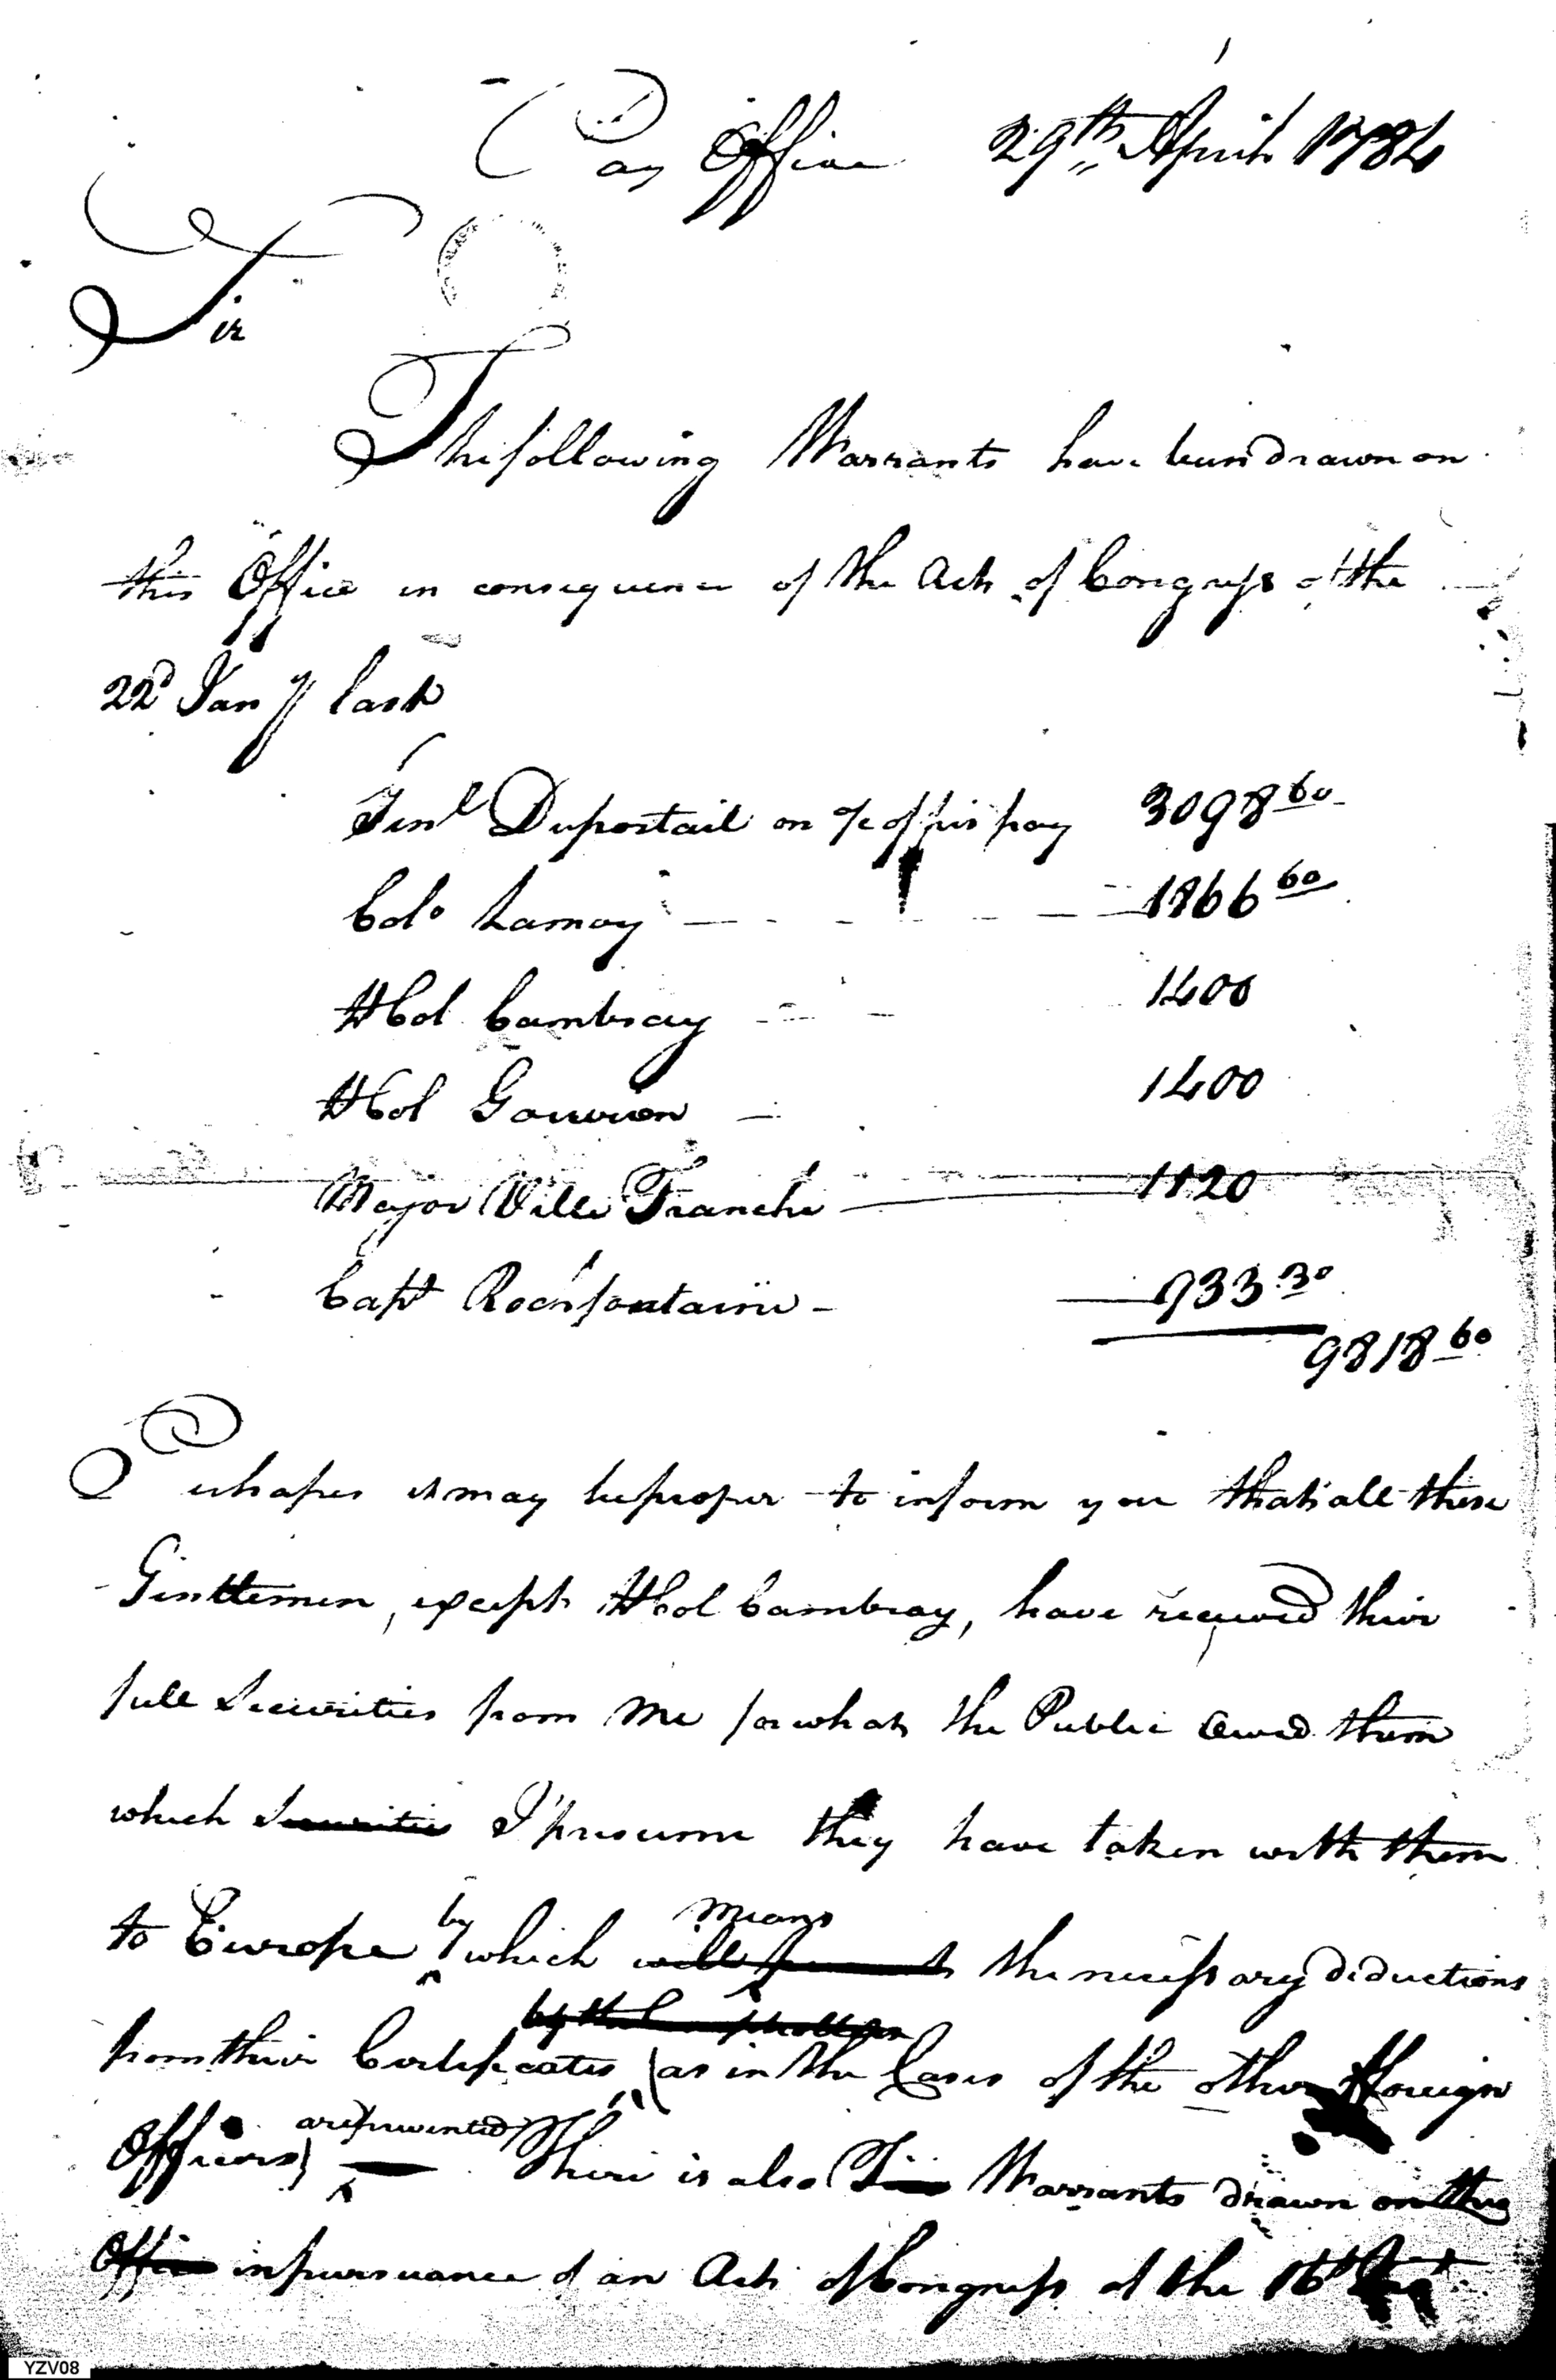 Pay Office 29th April 1784
Sir
The following Warrants have been drawn on
this Office in consequence of the Act of Congress of the
22d Jany last
Genl Duportail on a/c of his pay 3098 60
Colo Lamoy 1866 60
Lt Col Cambray 1400
Lt Col Gouvion 1400
Major Ville Franche 1120
Capt Rochfontaine 933 30
9818 60
Perhapes it may be proper to inform you that all these
Gentlemen, except Lt Col Cambray, have received their
full Securities from me for what the Public owed them
which Securities I presume they have taken with them
to Europe by which means the necessary deductions
from their Certificates (as in the Cases of the other fforeign
Officers) are prevented There is also Warrants drawn on this
Office in pursuance of an Act of Congress of the 16th
YZV08